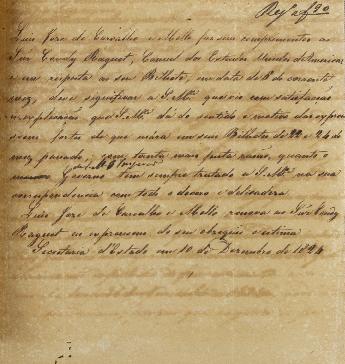 Luiz Jozé de Carvalho e Mello faz seus comprimentos ao
Snr. Condy Raguet, Consul dos Estados Unidos da America
e em resposta ao seu Bilhete, em data de 8 do corrente
mez, deve significar a S. Mce. que vio com satisfação
a explicação que S. Mce. dá do sentido e motivo das
fortes de que uzára em seus Bilhetes de 22 e 24 do
mez passado, com tanta mais justa razão, quanto o
Governo tem sempre tratado a S. Mce. na sua
correspondencia com todo o decoro e delicadeza.
Luiz Jozé de Carvalho e Mello renova ao Snr. Condy
Raguet as expressoens de sua obrigação e estima
Secretaria d'Estado em 10 de Dezembro de 1824